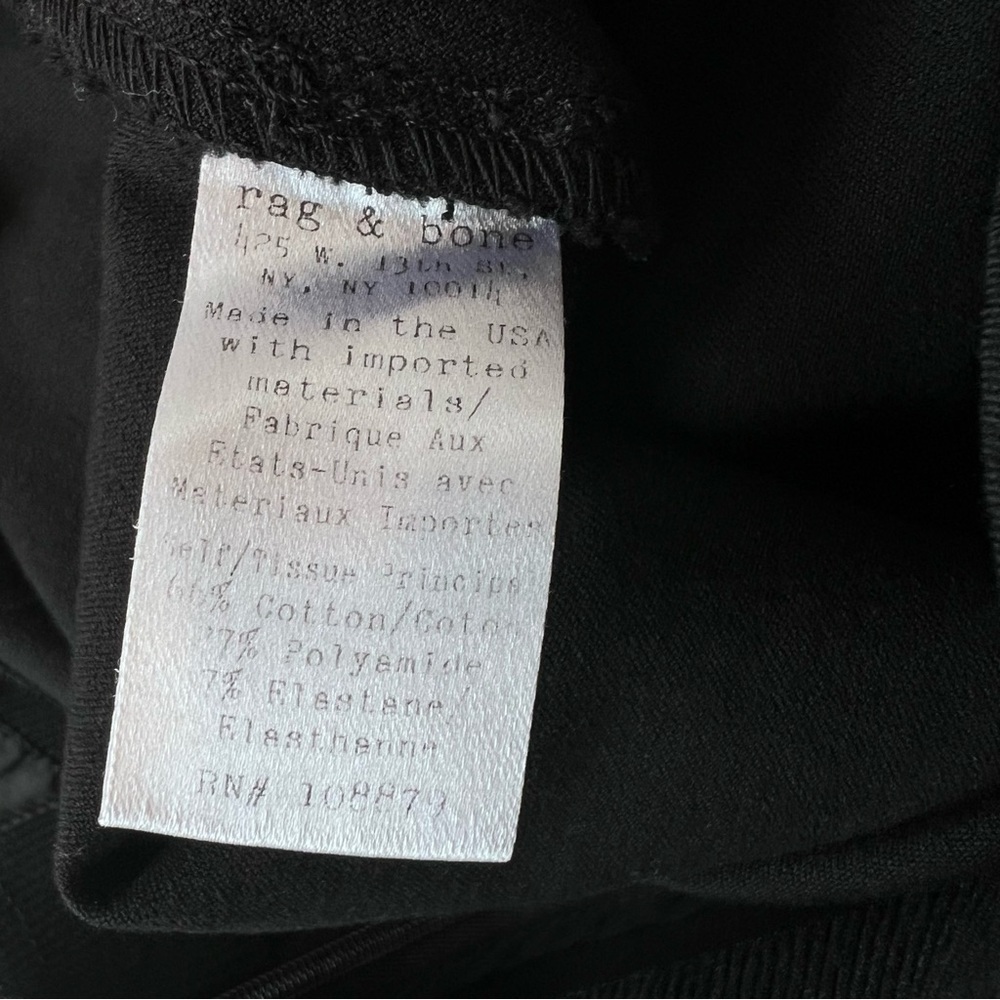 rag & bone
425 W. 13th St.,
NY, NY 10014
Made in the USA
with imported
materials/
Fabrique Aux
Etats-Unis avec
Materiaux Importes
Self/Tissue Principal
66% Cotton/Coton
27% Polyamide
7% Elastane/
Elasthanne
RN# 108879